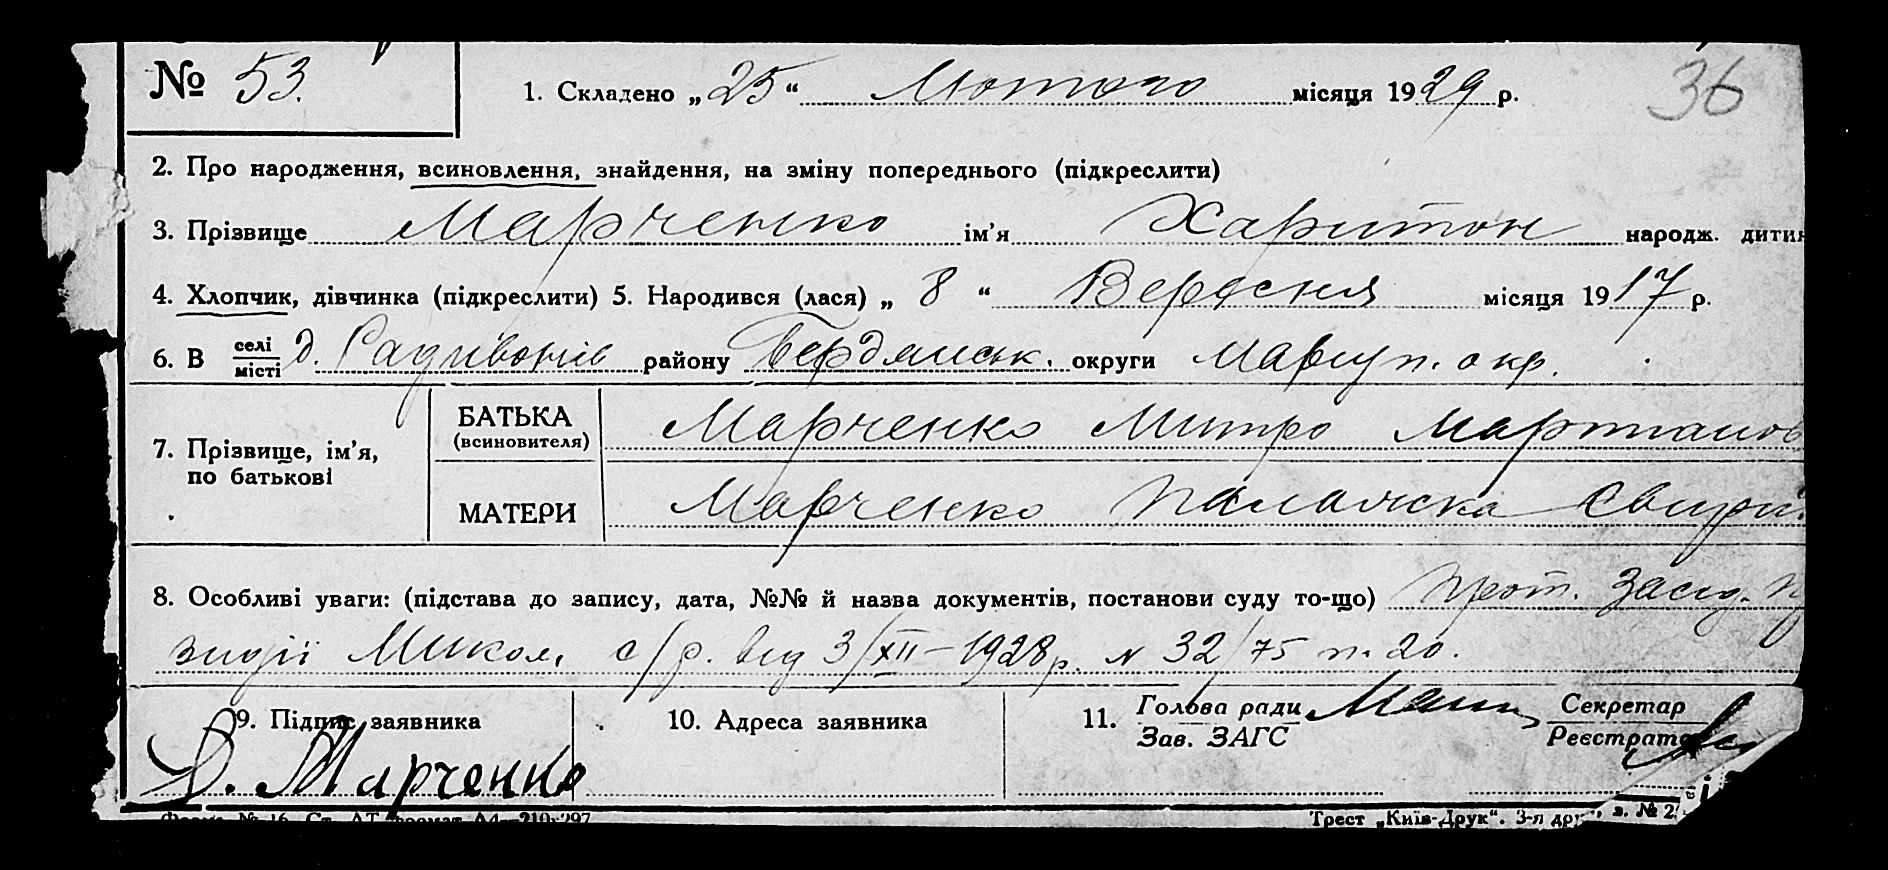 № 53. 1. Складено „25“ Лютого місяця 1929 р. 36
2. Про народження, всиновлення, знайдення, на зміну попереднього (підкреслити)
3. Прізвище Марченко ім’я Харитон народж. дитин
4. Хлопчик, дівчинка (підкреслити) 5. Народився (лася) „ 8 “ Вересня місяця 1917 р.
6. В селі місті д. Радивонів району Бердянськ. округи Маріуп. окр.
7. Прізвище, ім’я, по батькові
БАТЬКА (всиновителя) Марченко Митро Мартианов
МАТЕРИ Марченко Палажка Свирид
8. Особливі уваги: (підстава до запису, дата, №№ й назва документів, постанови суду то-що) Прот. Засід. Пр
зидії Микол. с/р. від 3/XII–1928р. N 32/75 п. 20.
9. Підпис заявника 10. Адреса заявника 11. Голова ради Секретар
Зав. ЗАГС Реєстрато
Д. Марченко
Форма № 16. Ст. АТ формат А4—210×297 Трест „Київ-Друк“. 3-я дру